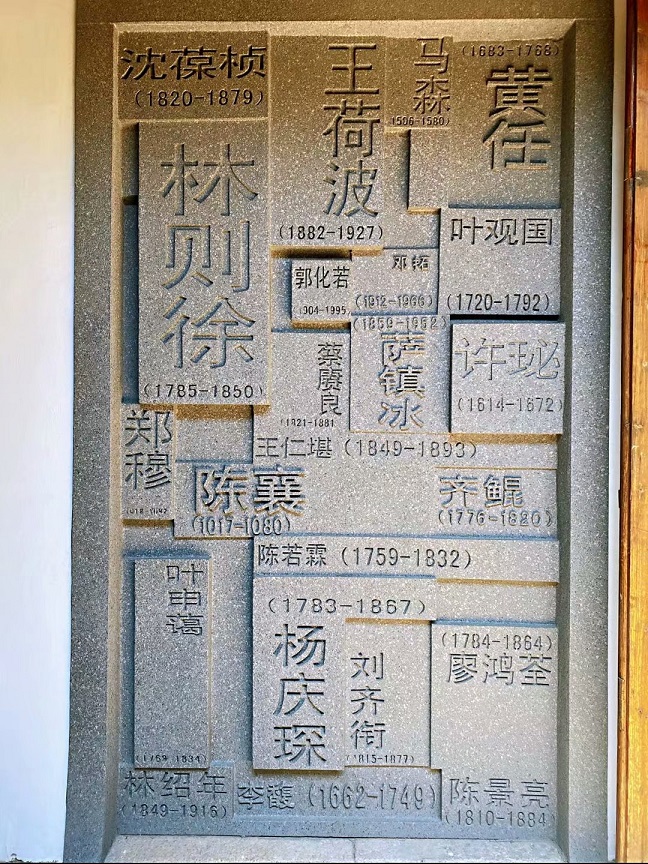 沈葆桢
(1820-1879)
王荷波
(1882-1927)
马森
1506-1580)
(1683-1768)
黄任
林则徐
(1785-1850)
叶观国
(1720-1792)
郭化若
1904-1995)
邓拓
(1912-1966)
(1859-1952)
萨镇冰
许珌
(1614-1672)
蔡赓良
(1821-1881
郑穆
1018-1092
王仁堪 (1849-1893)
陈襄
(1017-1080)
齐鲲
(1776-1820)
陈若霖 (1759-1832)
叶申蔼
(1769-1834)
(1783-1867)
杨庆琛
刘齐衔
(1815-1877)
(1784-1864)
廖鸿荃
林绍年
(1849-1916)
李馥 (1662-1749)
陈景亮
(1810-1884)